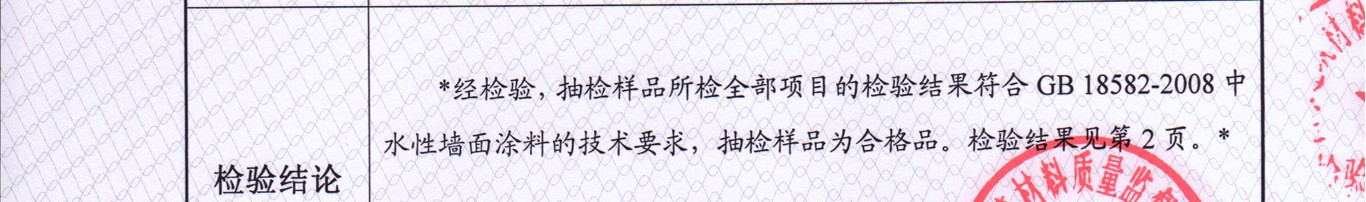 *经检验，抽检样品所检全部项目的检验结果符合 GB 18582-2008 中
水性墙面涂料的技术要求，抽检样品为合格品。检验结果见第 2 页。*
检验结论
材料质量监